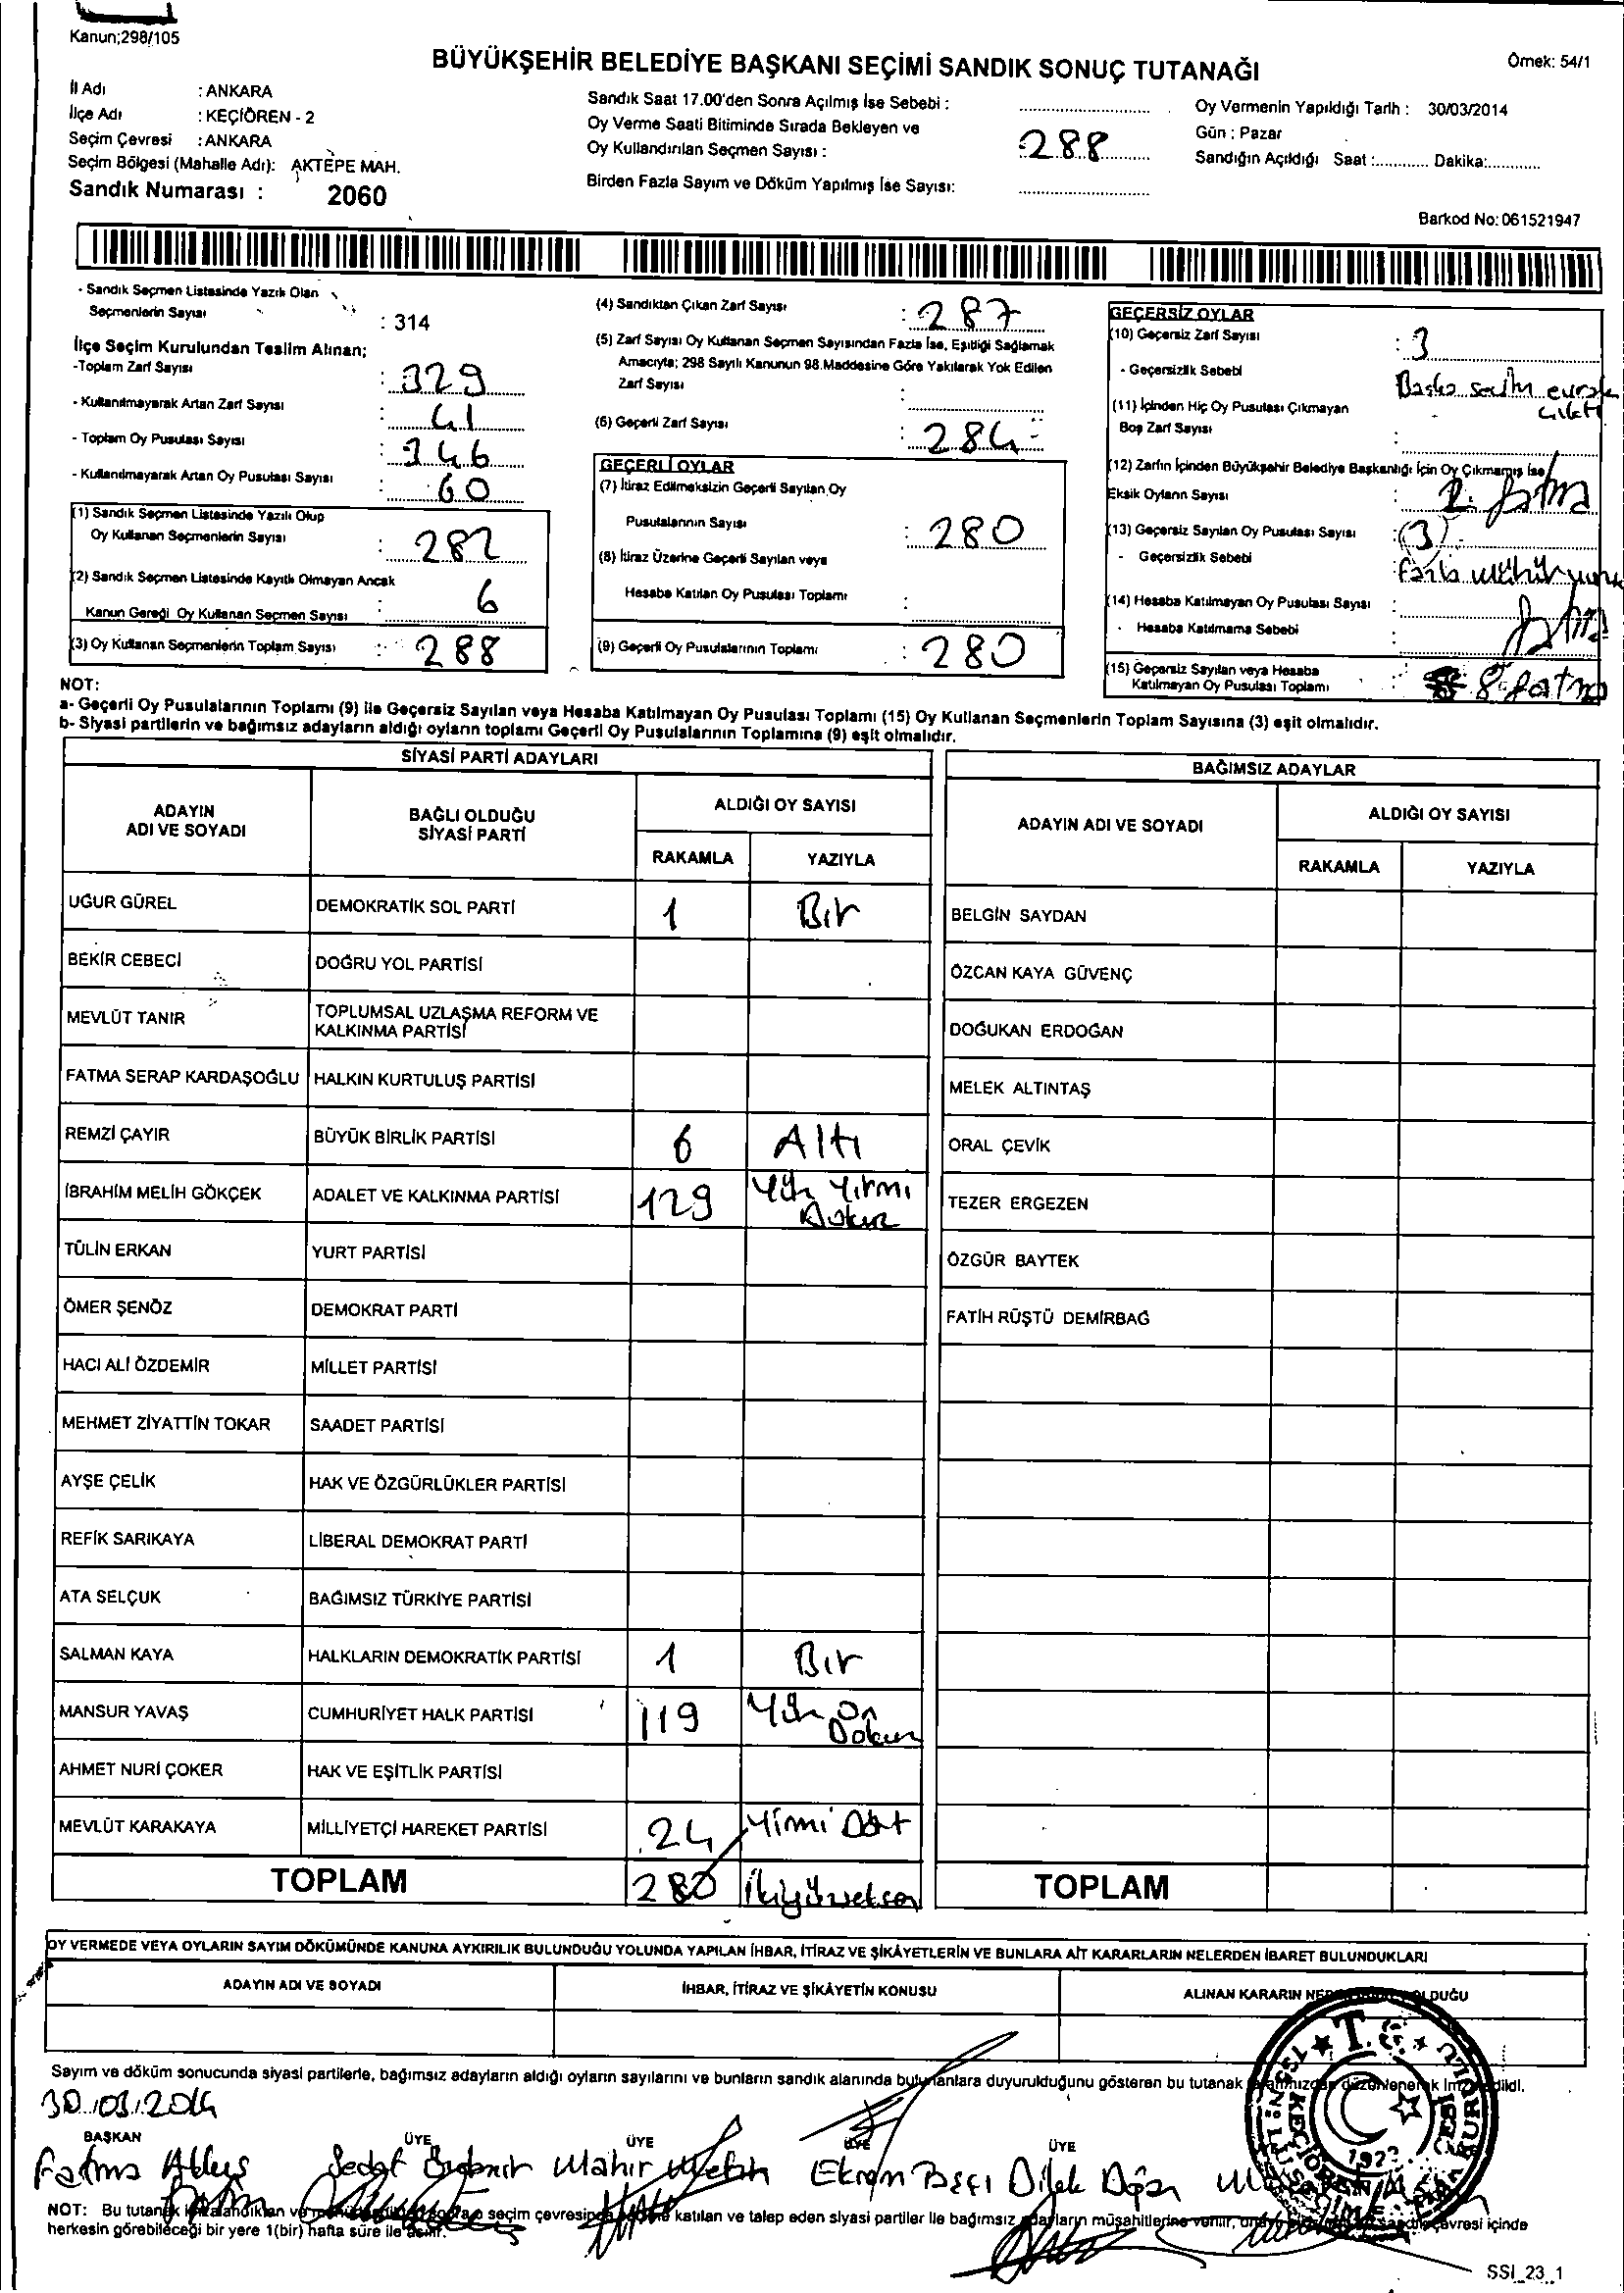 Kanun;298/105
BÜYÜKŞEHİR BELEDİYE BAŞKANI SEÇİMİ SANDIK SONUÇ TUTANAĞI
Örnek: 54/1
İl Adı : ANKARA
İlçe Adı : KEÇİÖREN - 2
Seçim Çevresi : ANKARA
Seçim Bölgesi (Mahalle Adı): AKTEPE MAH.
Sandık Numarası : 2060
Sandık Saat 17.00'den Sonra Açılmış İse Sebebi :
Oy Verme Saati Bitiminde Sırada Bekleyen ve
Oy Kullandırılan Seçmen Sayısı : 288
Birden Fazla Sayım ve Döküm Yapılmış İse Sayısı:
Oy Vermenin Yapıldığı Tarih : 30/03/2014
Gün : Pazar
Sandığın Açıldığı Saat :............ Dakika:............
Barkod No: 061521947
- Sandık Seçmen Listesinde Yazılı Olan
Seçmenlerin Sayısı : 314
İlçe Seçim Kurulundan Teslim Alınan;
-Toplam Zarf Sayısı : 329
- Kullanılmayarak Artan Zarf Sayısı : 41
- Toplam Oy Pusulası Sayısı : 346
- Kullanılmayarak Artan Oy Pusulası Sayısı : 60
(1) Sandık Seçmen Listesinde Yazılı Olup
Oy Kullanan Seçmenlerin Sayısı : 282
(2) Sandık Seçmen Listesinde Kayıtlı Olmayan Ancak
Kanun Gereği Oy Kullanan Seçmen Sayısı : 6
(3) Oy Kullanan Seçmenlerin Toplam Sayısı : 288
(4) Sandıktan Çıkan Zarf Sayısı : 287
(5) Zarf Sayısı Oy Kullanan Seçmen Sayısından Fazla İse, Eşitliği Sağlamak
Amacıyla; 298 Sayılı Kanunun 98.Maddesine Göre Yakılarak Yok Edilen
Zarf Sayısı :
(6) Geçerli Zarf Sayısı : 284
GEÇERLİ OYLAR
(7) İtiraz Edilmeksizin Geçerli Sayılan Oy
Pusulalarının Sayısı : 280
(8) İtiraz Üzerine Geçerli Sayılan veya
Hesaba Katılan Oy Pusulası Toplamı :
(9) Geçerli Oy Pusulalarının Toplamı : 280
GEÇERSİZ OYLAR
(10) Geçersiz Zarf Sayısı : 3
- Geçersizlik Sebebi Başka seçim evrak
çıktı
(11) İçinden Hiç Oy Pusulası Çıkmayan
Boş Zarf Sayısı :
(12) Zarfın İçinden Büyükşehir Belediye Başkanlığı İçin Oy Çıkmamış İse
Eksik Oyların Sayısı : 2 fatma
(13) Geçersiz Sayılan Oy Pusulası Sayısı : (3)
- Geçersizlik Sebebi :
(14) Hesaba Katılmayan Oy Pusulası Sayısı :
- Hesaba Katılmama Sebebi :
(15) Geçersiz Sayılan veya Hesaba
Katılmayan Oy Pusulası Toplamı : 8 fatma
NOT:
a- Geçerli Oy Pusulalarının Toplamı (9) ile Geçersiz Sayılan veya Hesaba Katılmayan Oy Pusulası Toplamı (15) Oy Kullanan Seçmenlerin Toplam Sayısına (3) eşit olmalıdır.
b- Siyasi partilerin ve bağımsız adayların aldığı oyların toplamı Geçerli Oy Pusulalarının Toplamına (9) eşit olmalıdır.
SİYASİ PARTİ ADAYLARI
ADAYIN
ADI VE SOYADI
BAĞLI OLDUĞU
SİYASİ PARTİ
ALDIĞI OY SAYISI
RAKAMLA YAZIYLA
UĞUR GÜREL DEMOKRATİK SOL PARTİ 1 Bir
BEKİR CEBECİ DOĞRU YOL PARTİSİ
MEVLÜT TANIR TOPLUMSAL UZLAŞMA REFORM VE
KALKINMA PARTİSİ
FATMA SERAP KARDAŞOĞLU HALKIN KURTULUŞ PARTİSİ
REMZİ ÇAYIR BÜYÜK BİRLİK PARTİSİ 6 Altı
İBRAHİM MELİH GÖKÇEK ADALET VE KALKINMA PARTİSİ 129 Yüz Yirmi
Dokuz
TÜLİN ERKAN YURT PARTİSİ
ÖMER ŞENÖZ DEMOKRAT PARTİ
HACI ALİ ÖZDEMİR MİLLET PARTİSİ
MEHMET ZİYATTİN TOKAR SAADET PARTİSİ
AYŞE ÇELİK HAK VE ÖZGÜRLÜKLER PARTİSİ
REFİK SARIKAYA LİBERAL DEMOKRAT PARTİ
ATA SELÇUK BAĞIMSIZ TÜRKİYE PARTİSİ
SALMAN KAYA HALKLARIN DEMOKRATİK PARTİSİ 1 Bir
MANSUR YAVAŞ CUMHURİYET HALK PARTİSİ 119 Yüz On
Dokuz
AHMET NURİ ÇOKER HAK VE EŞİTLİK PARTİSİ
MEVLÜT KARAKAYA MİLLİYETÇİ HAREKET PARTİSİ 24 Yirmi Dört
TOPLAM 280 İkiyüzseksen
BAĞIMSIZ ADAYLAR
ADAYIN ADI VE SOYADI
ALDIĞI OY SAYISI
RAKAMLA YAZIYLA
BELGİN SAYDAN
ÖZCAN KAYA GÜVENÇ
DOĞUKAN ERDOĞAN
MELEK ALTINTAŞ
ORAL ÇEVİK
TEZER ERGEZEN
ÖZGÜR BAYTEK
FATİH RÜŞTÜ DEMİRBAĞ
TOPLAM
OY VERMEDE VEYA OYLARIN SAYIM DÖKÜMÜNDE KANUNA AYKIRILIK BULUNDUĞU YOLUNDA YAPILAN İHBAR, İTİRAZ VE ŞİKÂYETLERİN VE BUNLARA AİT KARARLARIN NELERDEN İBARET BULUNDUKLARI
ADAYIN ADI VE SOYADI
İHBAR, İTİRAZ VE ŞİKÂYETİN KONUSU
ALINAN KARARIN OLDUĞU
Sayım ve döküm sonucunda siyasi partilerle, bağımsız adayların aldığı oyların sayılarını ve bunların sandık alanında bulunanlara duyurulduğunu gösteren bu tutanak tarafımızdan düzenlenerek imza edildi.
30.03.2014
BAŞKAN ÜYE ÜYE ÜYE ÜYE
Fatma Sedat Mahir Ekrem Dilek
T.C.
1923
NOT: Bu tutanak seçim çevresinde katılan ve talep eden siyasi partiler ile bağımsız adayların müşahitlerine verilir, çevresi içinde
herkesin görebileceği bir yere 1(bir) hafta süre ile asılır.
SSI_23_1